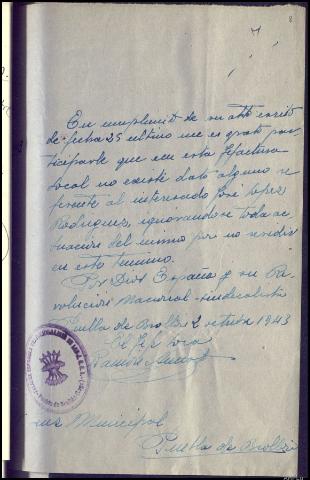 En cumplimtº de su attº escrito
de fecha 25 ultimo me es grato par-
ticiparle que en esta Jefactura
local no existe dato alguno re-
ferente al interesado José Lopez
Rodriguez, ignorandose toda ac-
tuación del mismo por no residir
en este termino.
Por Dios España y su Re-
volución Nacional-sindicalista
Puebla de Brollón 2 octubre 1943
El Jefe local
Ramón
Municipal
Puebla de Brollón